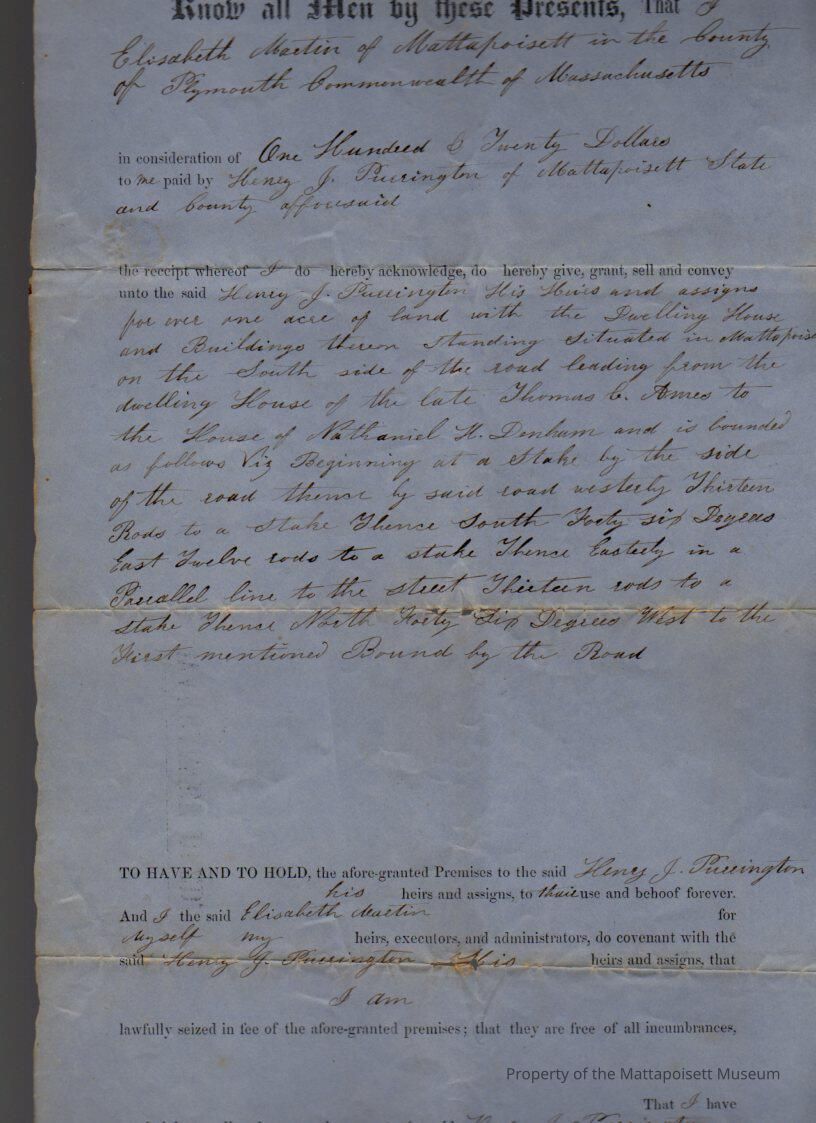 Know all Men by these Presents, That I
Elisabeth Martin of Mattapoisett in the County
of Plymouth Commonwealth of Massachusetts
in consideration of One Hundred & Twenty Dollars
to me paid by Henry J. Purrington of Mattapoisett State
and County afforesaid
the receipt whereof I do hereby acknowledge, do hereby give, grant, sell and convey
unto the said Henry J. Purrington His Heirs and assigns
for ever one acre of land with the Dwelling House
and Buildings thereon Standing Situated in Mattapoise
on the South side of the road leading from the
dwelling House of the late Thomas C. Ames to
the House of Nathaniel H. Denham and is bounded
as follows Viz Beginning at a Stake by the side
of the road thence by said road westerly Thirteen
Rods to a Stake Thence South Forty six Degrees
East Twelve rods to a stake Thence Easterly in a
Parallel line to the street Thirteen rods to a
stake Thence North Forty Six Degrees West to the
First mentioned Bound by the Road
TO HAVE AND TO HOLD, the afore-granted Premises to the said Henry J. Purrington
his heirs and assigns, to thair use and behoof forever.
And I the said Elisabeth Martin for
Myself my heirs, executors, and administrators, do covenant with the
said Henry J. Purrington His heirs and assigns, that
I am
lawfully seized in fee of the afore-granted premises; that they are free of all incumbrances,
Property of the Mattapoisett Museum
That I have